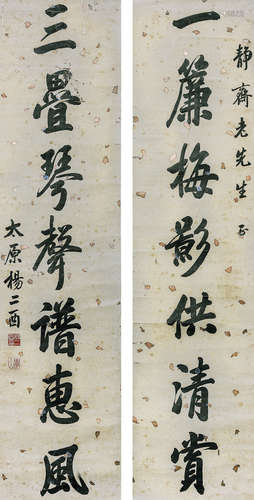 靜齋老先生正
一簾梅影供清賞
三疊琴聲譜惠風
太原楊二酉